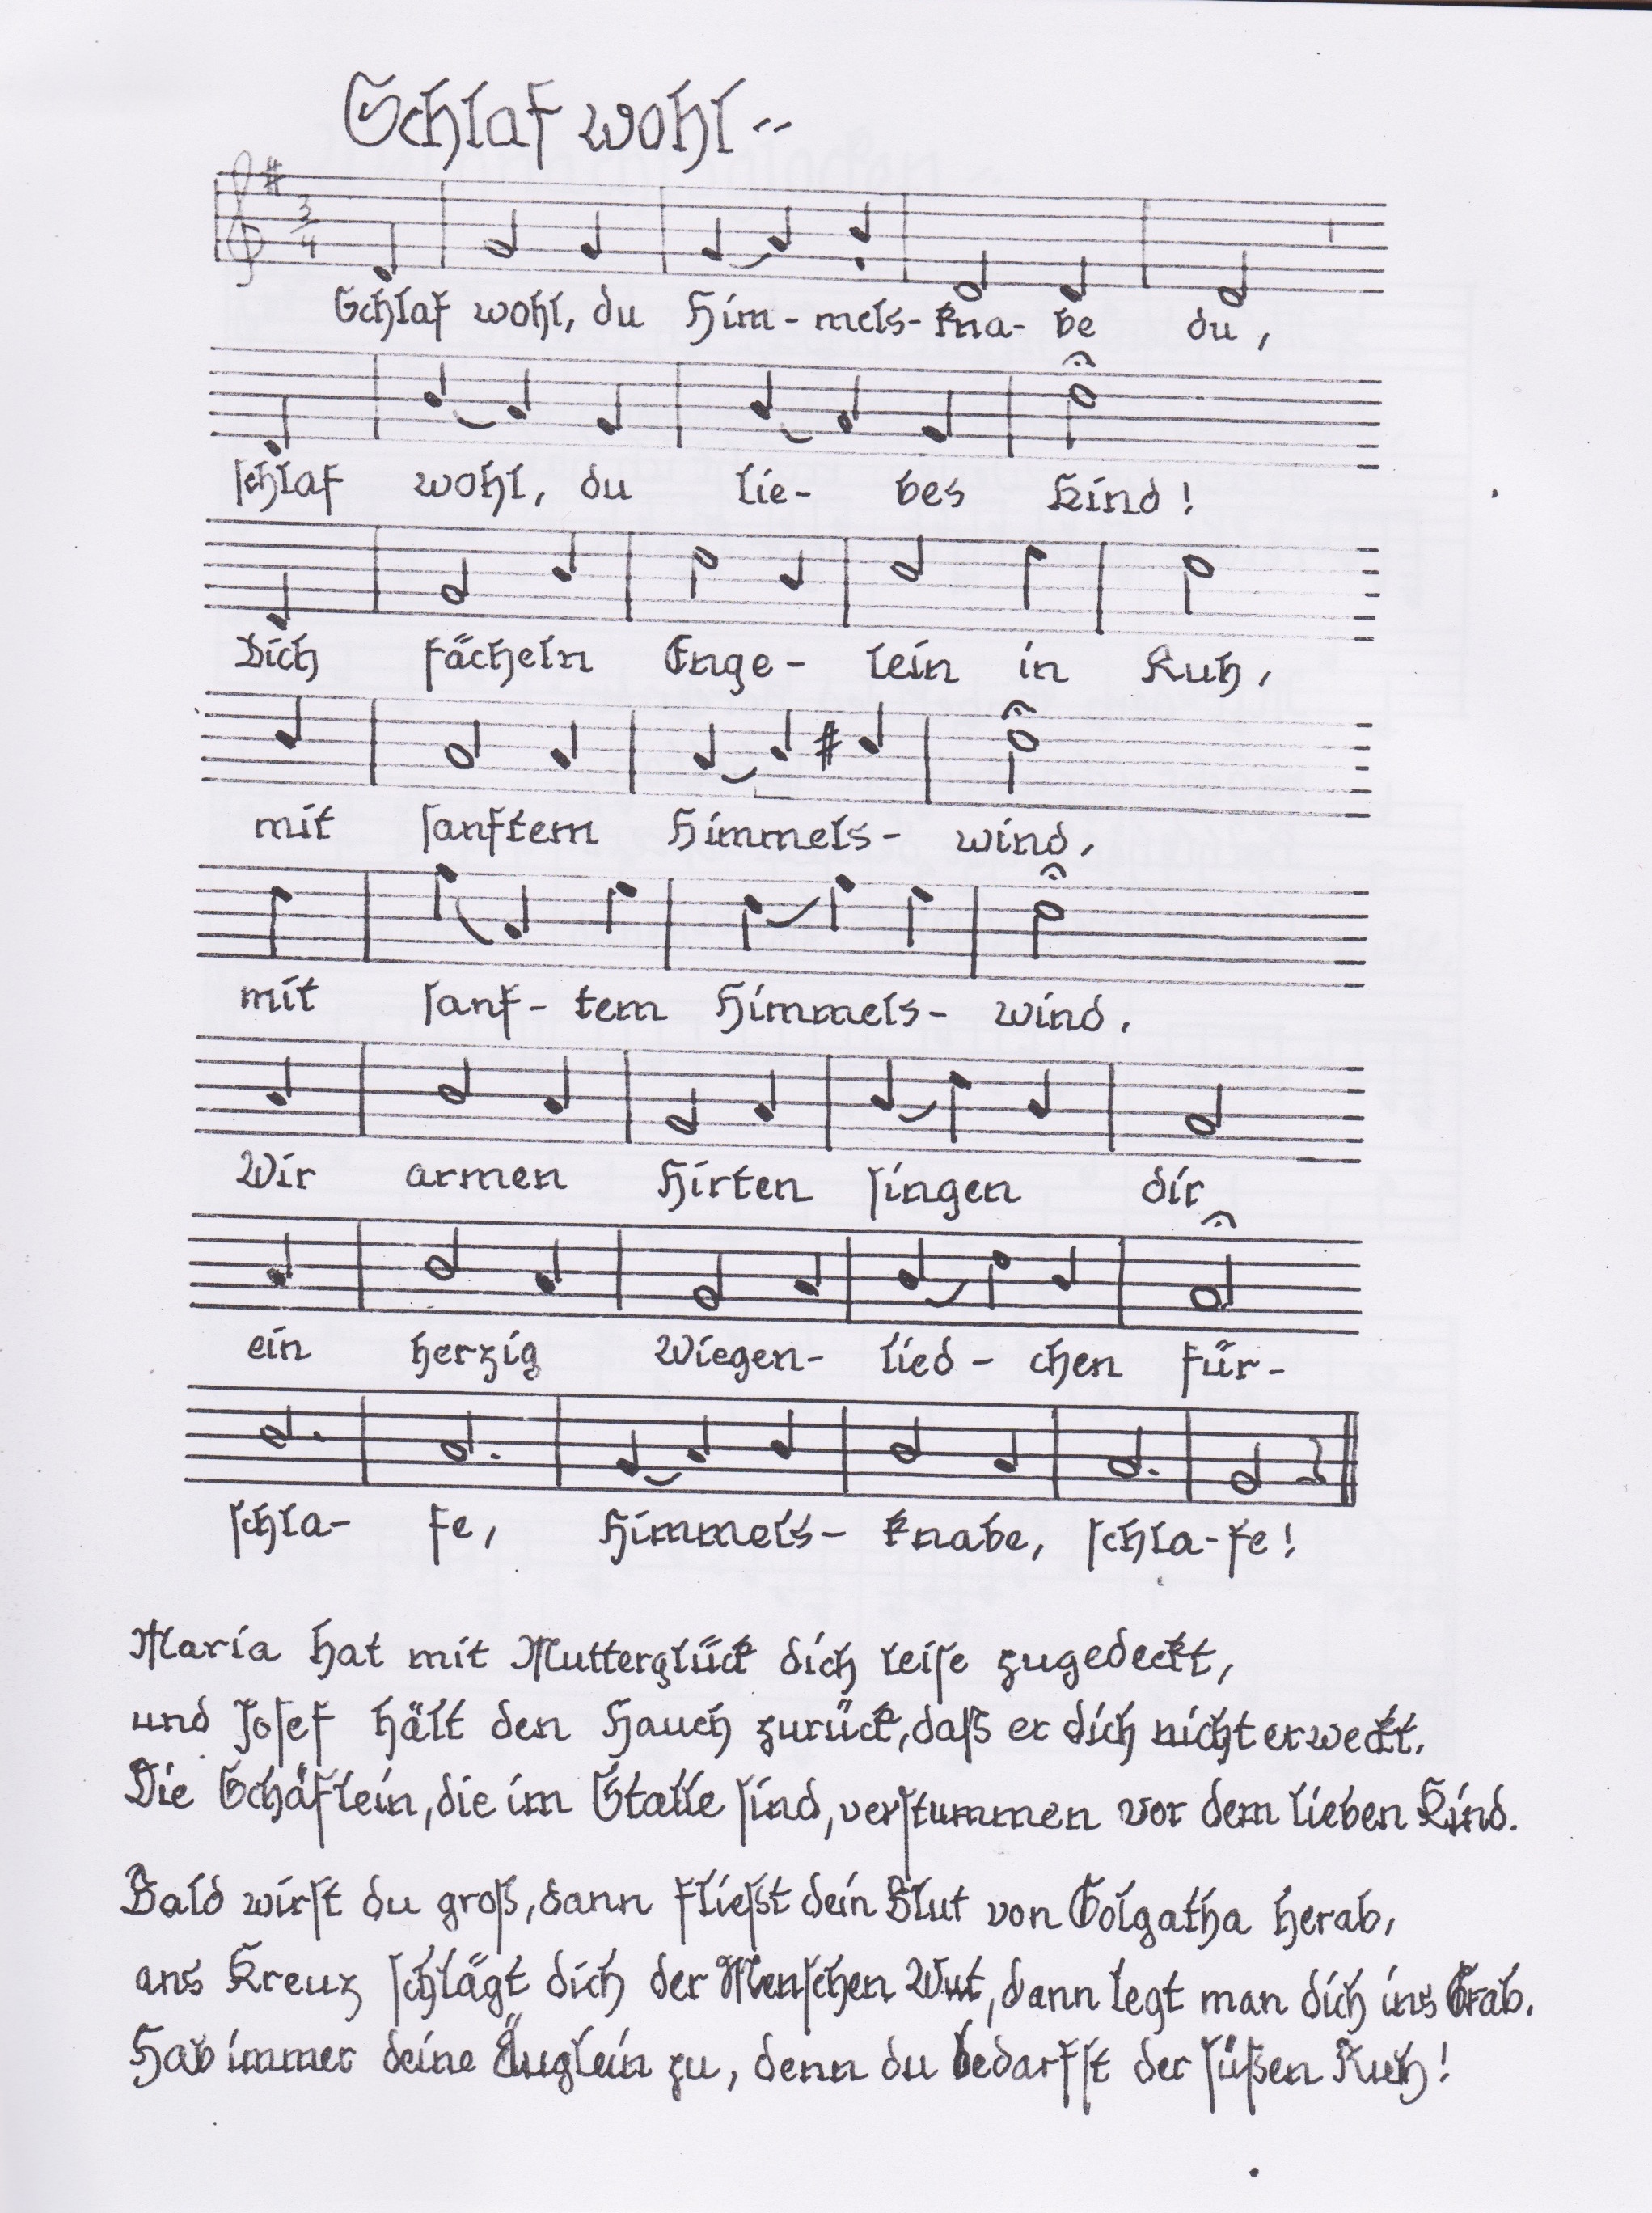 Schlaf wohl --
3
4
Schlaf wohl, du Him- mels- kna- be du,
ſchlaf wohl, du lie- bes Kind!
Dich fächeln Enge- lein in Ruh,
mit ſanftem Himmels- wind,
mit ſanf- tem Himmels- wind.
Wir armen Hirten ſingen dir
ein herzig Wiegen- lied- chen für-
ſchla- fe, Himmels- knabe, ſchla-fe!
Maria hat mit Mutterglück dich leiſe zugedeckt,
und Joſef hält den Hauch zurück, daſs er dich nicht erweckt.
Die Schäflein, die im Stalle ſind, verſtummen vor dem lieben Kind.
Bald wirſt du groſs, dann flieſst dein Blut von Golgatha herab,
ans Kreuz ſchlägt dich der Menſchen Wut, dann legt man dich ins Grab.
Hab immer deine Äuglein zu, denn du bedarfſt der ſüßen Ruh!